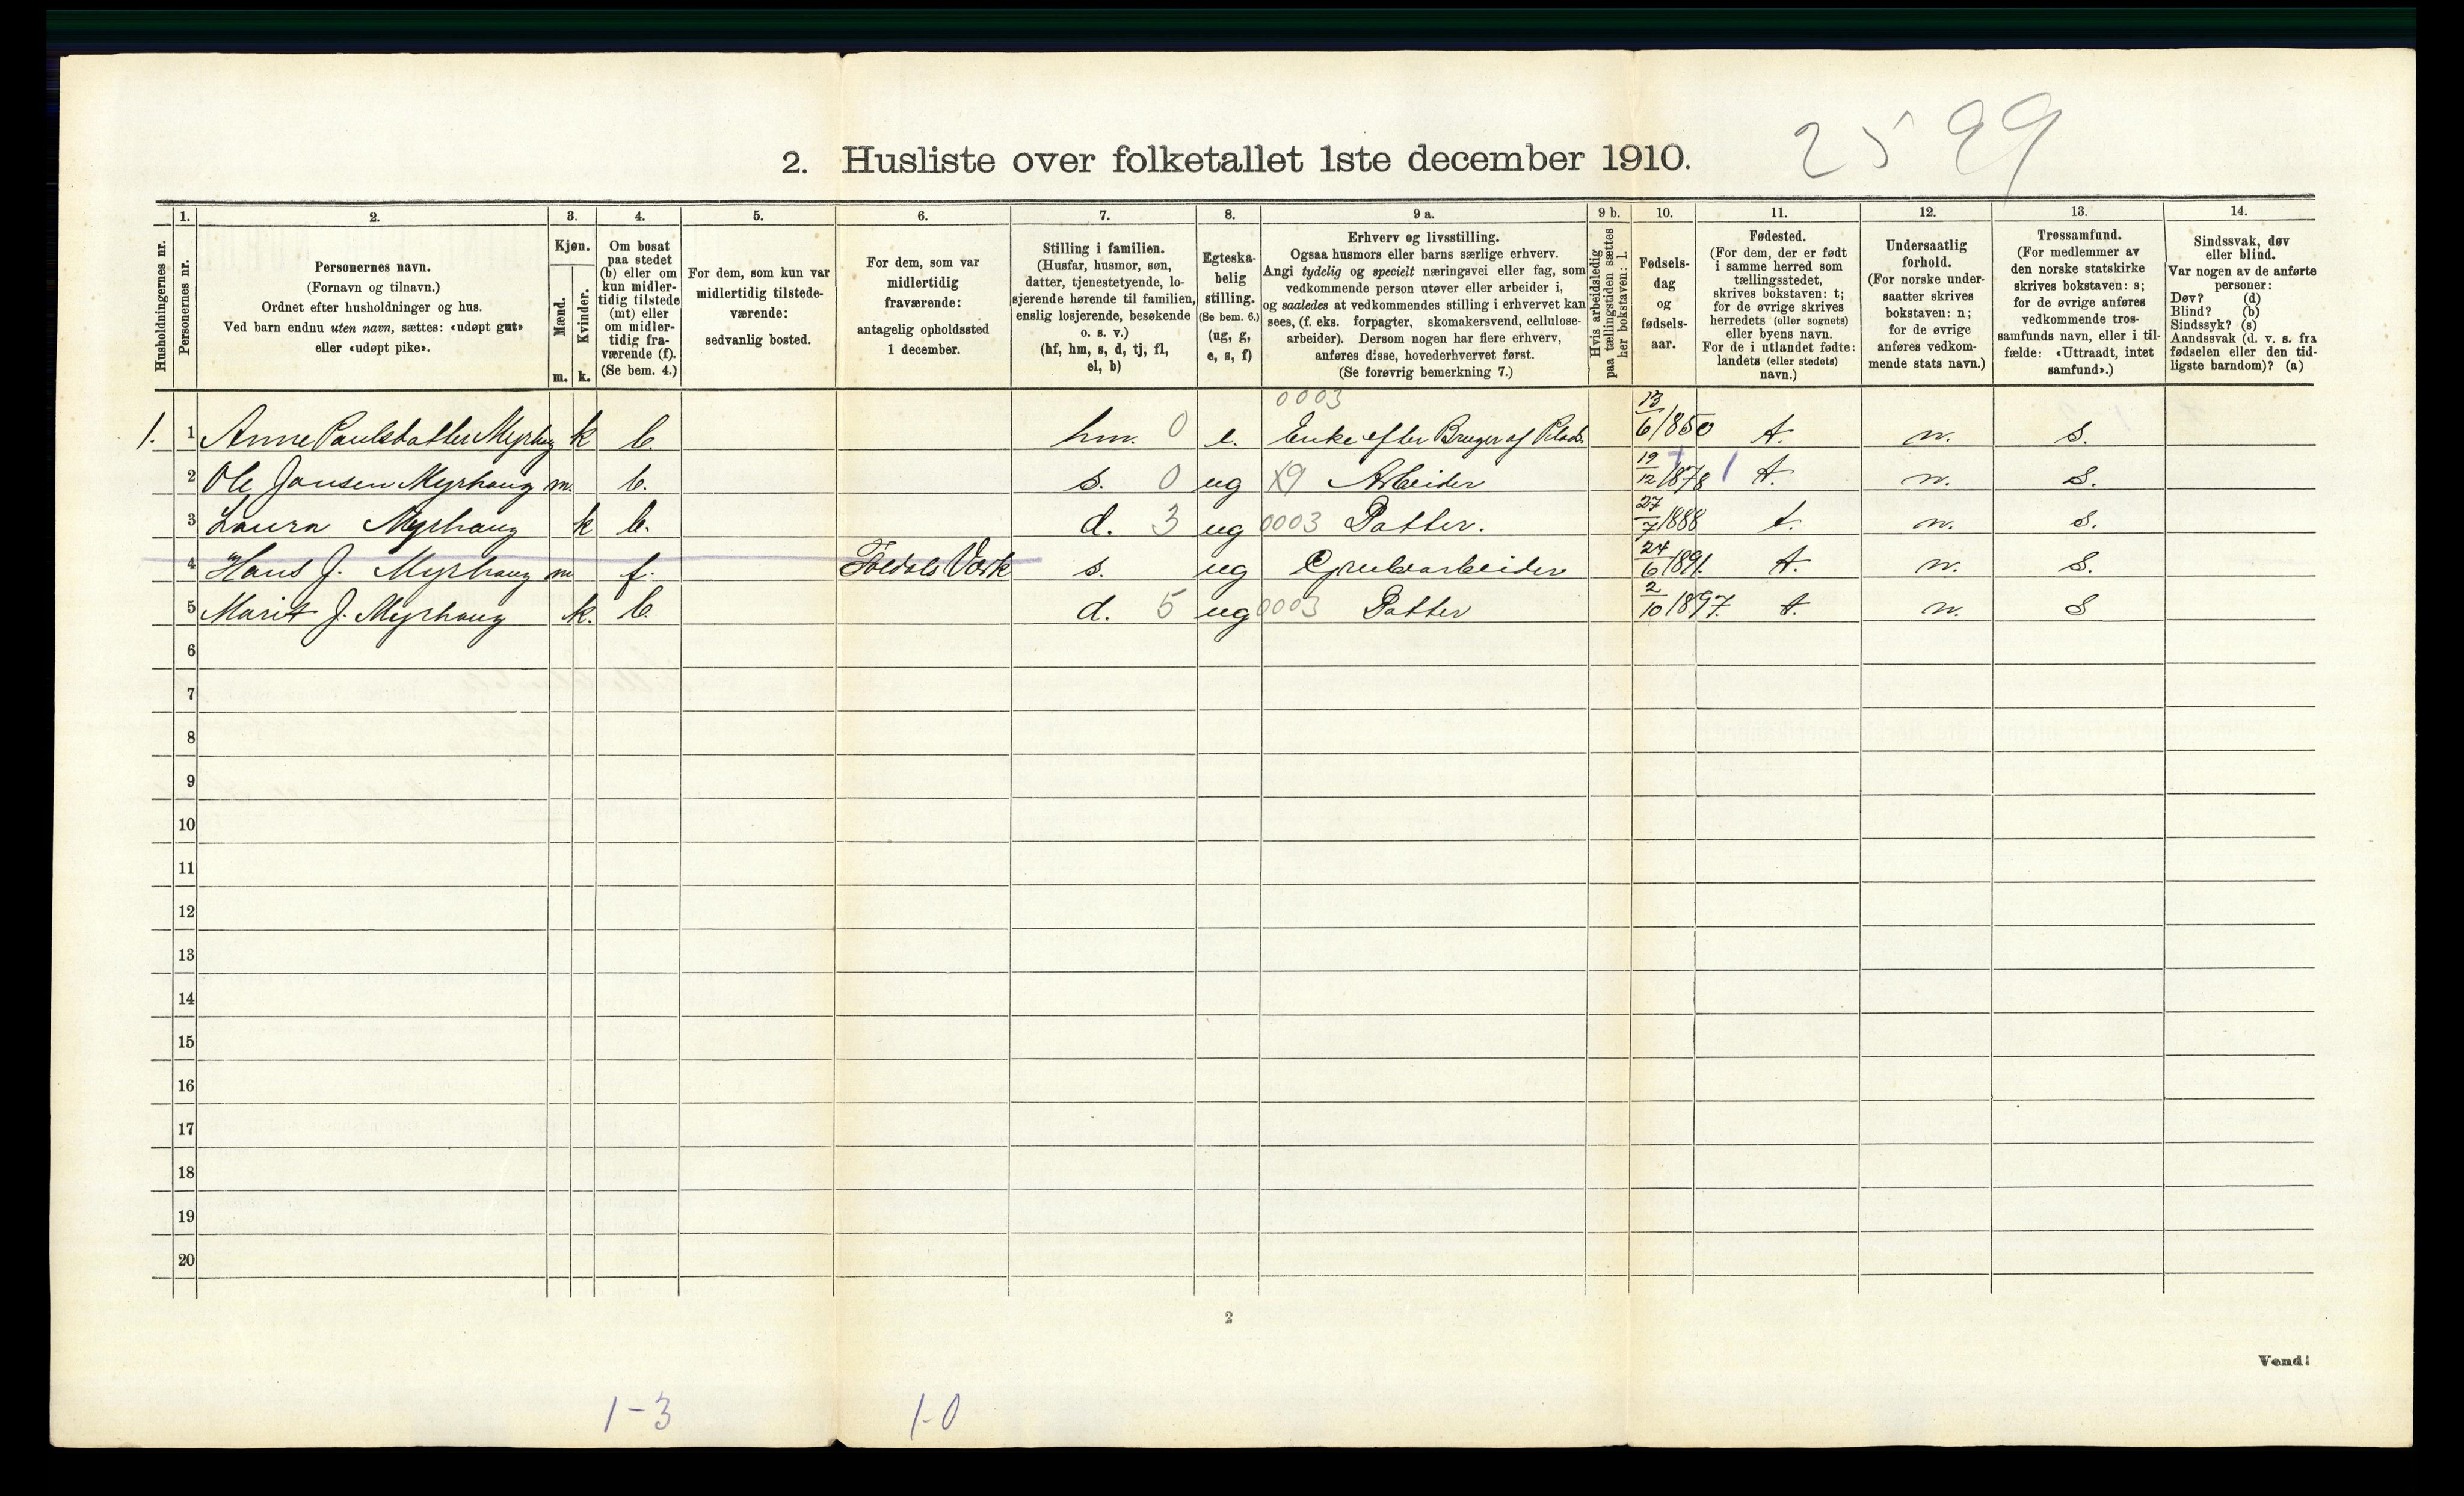 2599
2. Husliste over folketallet 1ste december 1910.
Husholdningernes nr.
1.
Personernes nr.
2.
Personernes navn.
(Fornavn og tilnavn.)
Ordnet efter husholdninger og hus.
Ved barn endnu uten navn, sættes: «udøpt gut»
eller «udøpt pike».
3.
Kjøn.
Mænd.
Kvinder.
m. k.
4.
Om bosat
paa stedet
(b) eller om
kun midler-
tidig tilstede
(mt) eller
om midler-
tidig fra-
værende (f).
(Se bem. 4.)
5.
For dem, som kun var
midlertidig tilstede-
værende:
sedvanlig bosted.
6.
For dem, som var
midlertidig
fraværende:
antagelig opholdssted
1 december.
7.
Stilling i familien.
(Husfar, husmor, søn,
datter, tjenestetyende, lo-
sjerende hørende til familien,
enslig losjerende, besøkende
o. s. v.)
(hf, hm, s, d, tj, fl,
el, b)
8.
Egteska-
belig
stilling.
(Se bem. 6.)
(ug, g,
e, s, f)
9 a.
Erhverv og livsstilling.
Ogsaa husmors eller barns særlige erhverv.
Angi tydelig og specielt næringsvei eller fag, som
vedkommende person utøver eller arbeider i,
og saaledes at vedkommendes stilling i erhvervet kan
sees, (f. eks. forpagter, skomakersvend, cellulose-
arbeider). Dersom nogen har flere erhverv,
anføres disse, hovederhvervet først.
(Se forøvrig bemerkning 7.)
9 b.
Hvis arbeidsledig
paa tællingstiden sættes
her bokstaven: l.
10.
Fødsels-
dag
og
fødsels-
aar.
11.
Fødested.
(For dem, der er født
i samme herred som
tællingsstedet,
skrives bokstaven: t;
for de øvrige skrives
herredets (eller sognets)
eller byens navn.
For de i utlandet fødte:
landets (eller stedets)
navn.)
12.
Undersaatlig
forhold.
(For norske under-
saatter skrives
bokstaven: n;
for de øvrige
anføres vedkom-
mende stats navn.)
13.
Trossamfund.
(For medlemmer av
den norske statskirke
skrives bokstaven: s;
for de øvrige anføres
vedkommende tros-
samfunds navn, eller i til-
fælde: «Uttraadt, intet
samfund».)
14.
Sindssvak, døv
eller blind.
Var nogen av de anførte
personer:
Døv? (d)
Blind? (b)
Sindssyk? (s)
Aandssvak (d. v. s. fra
fødselen eller den tid-
ligste barndom)? (a)
0003
1. 1 Anne Paulsdatter Myrhaug k b. hm. 0 e. Enke efter Bruger af Plads. 13/6 1850 t. n. s.
2 Ole Jonsen Myrhaug m. b. s. 0 ug X9 Arbeider 19/12 1878 1 t. n. s.
3 Laura Myrhaug k b. d. 3 ug 0003 Datter. 27/7 1888 t. n. s.
4 Hans J. Myrhaug m f. Foldals Værk s. ug Grubearbeider 24/6 1891. t. n. s.
5 Marit J. Myrhaug k. b. d. 5 ug 0003 Datter 2/10 1897. t. n. s
6
7
8
9
10
11
12
13
14
15
16
17
18
19
20
2
Vend!
1-3 1-0